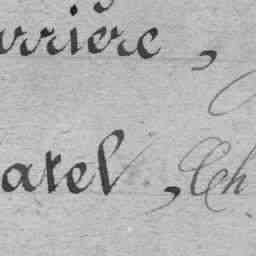 rrière,
atel, Ch